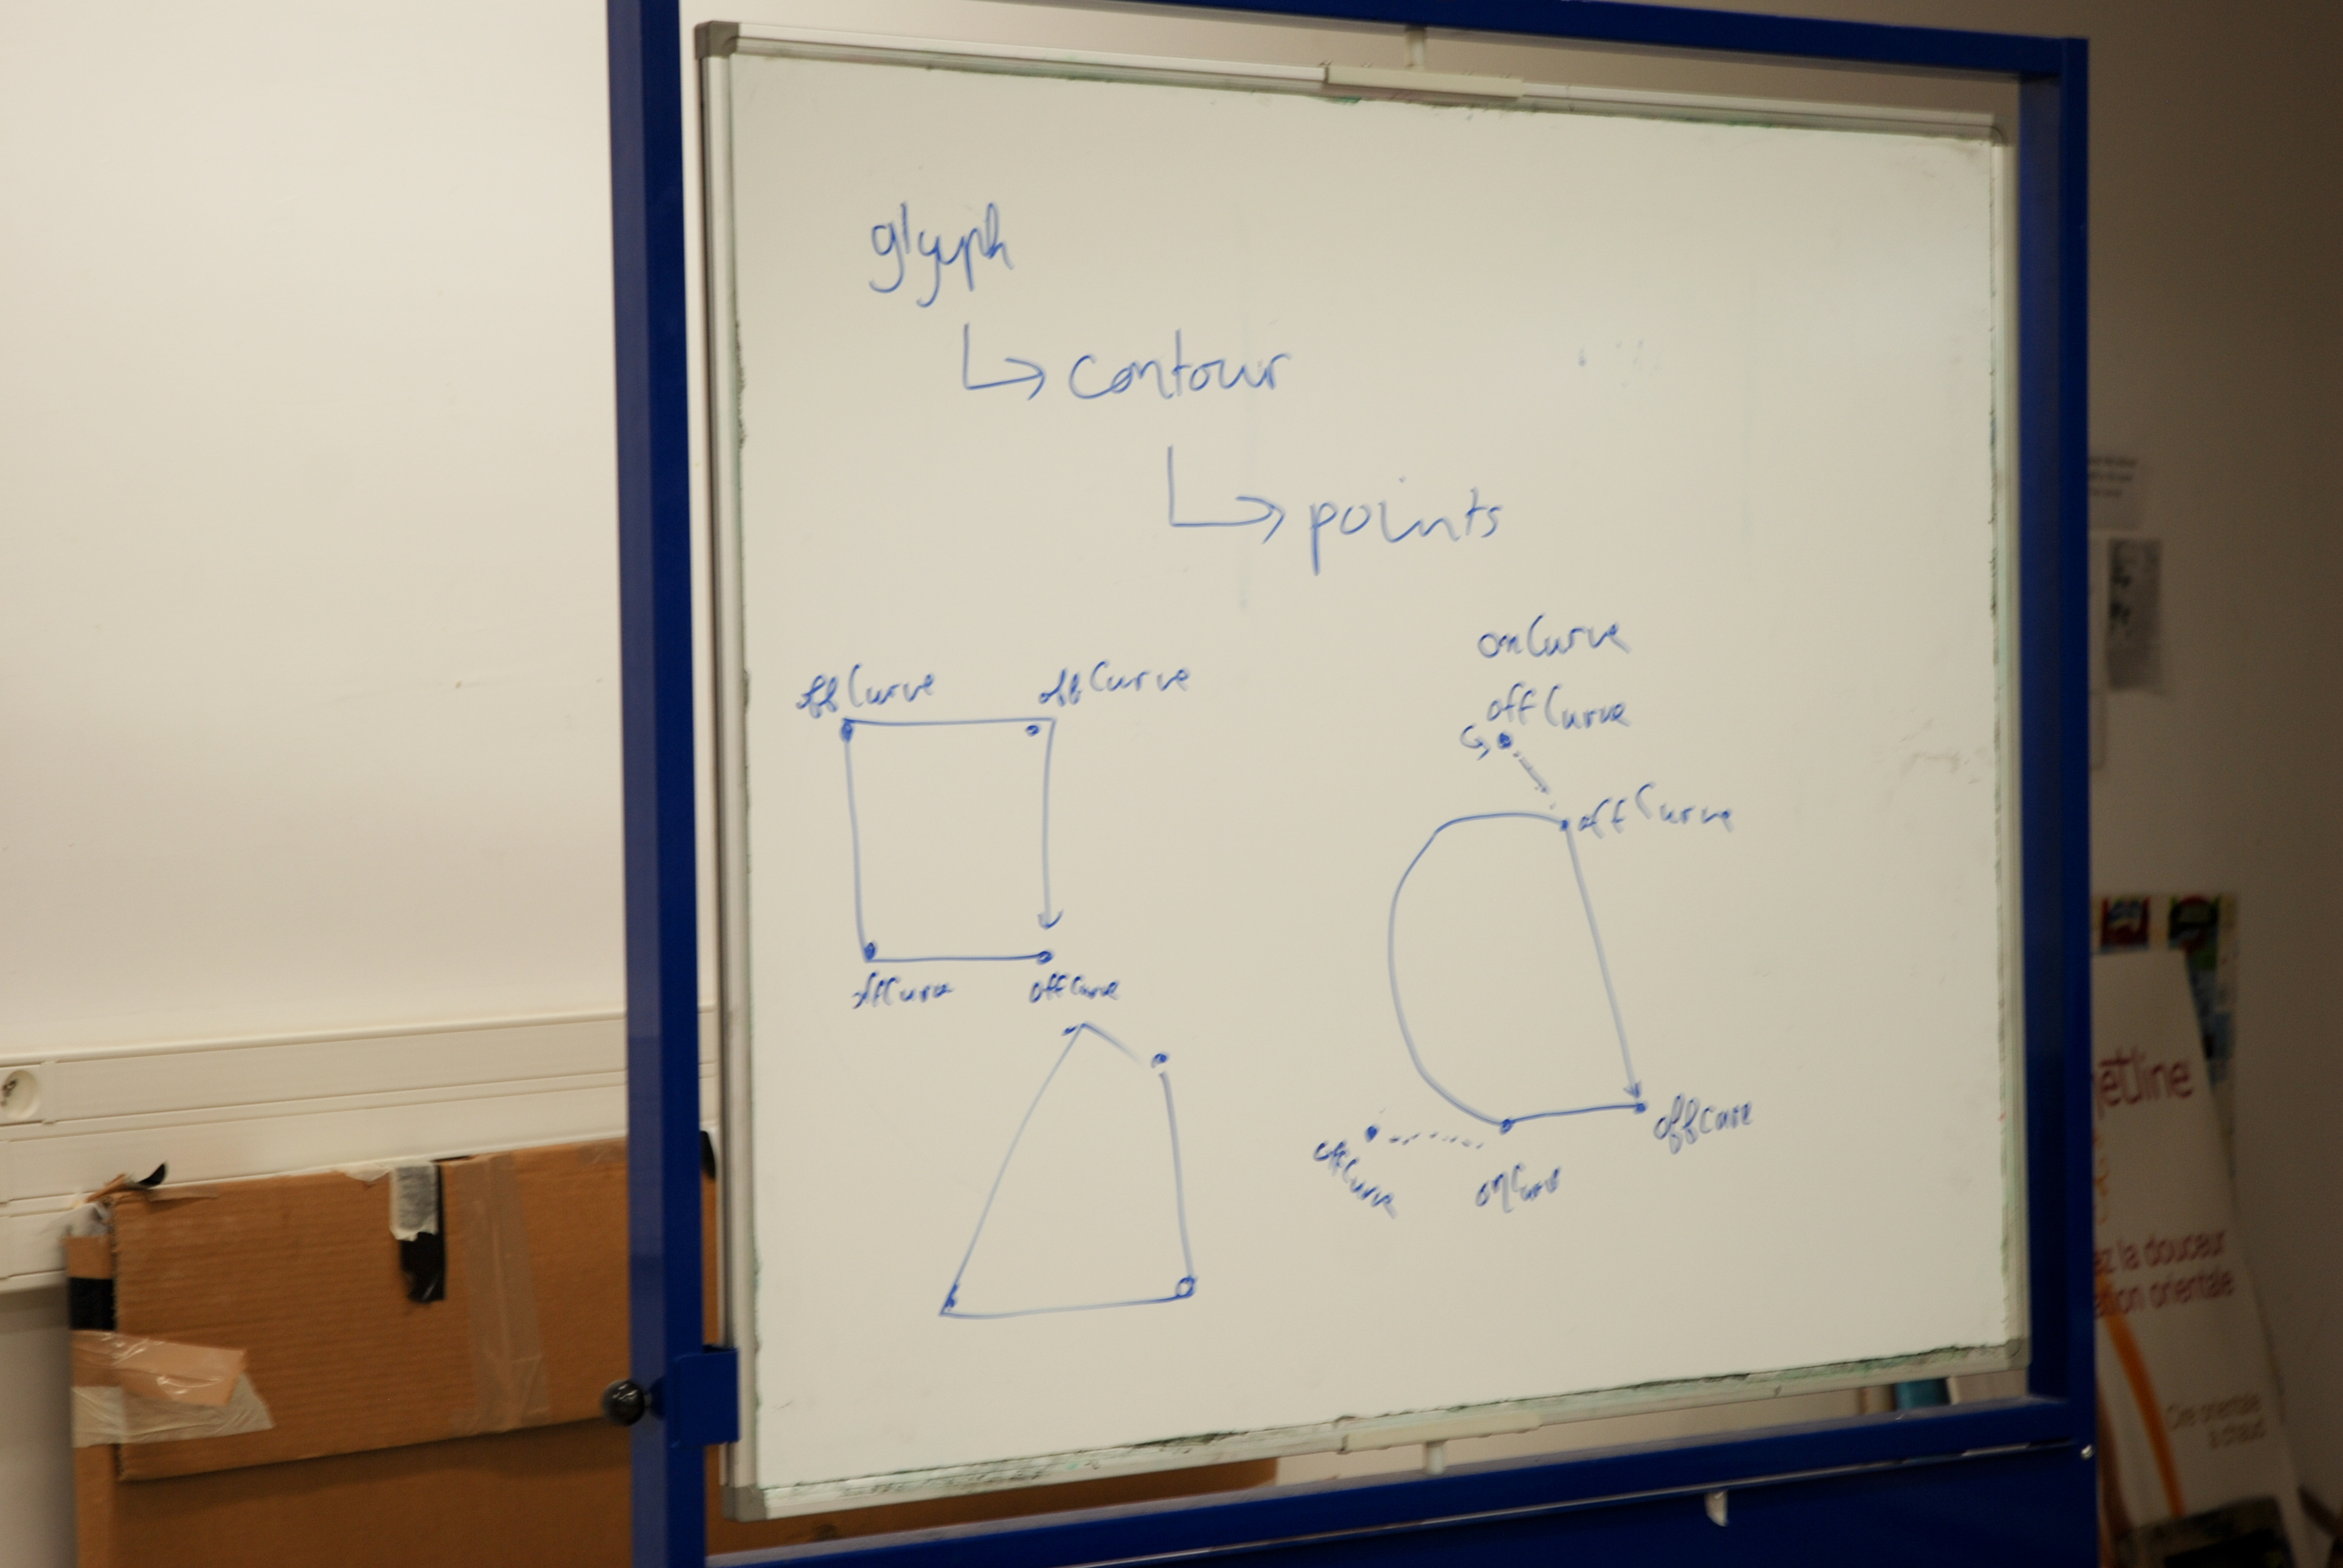 glyph
contour
points
onCurve
offCurve offCurve
offCurve
offCurve
offCurve offCurve
offCurve
offCurve
onCurve
etline
ez la douceur
ation orientale
Cire orientale
à chaud